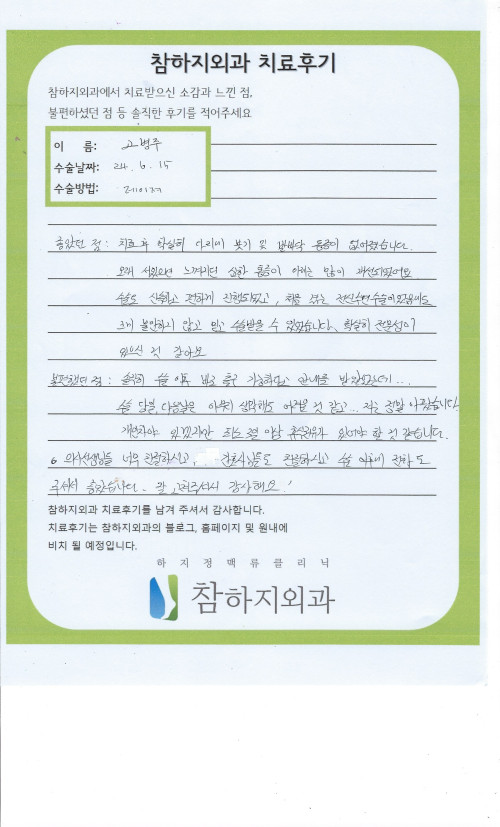 참하지외과 치료후기
참하지외과에서 치료받으신 소감과 느낀 점,
불편하셨던 점 등 솔직한 후기를 적어주세요
이 름: 고병주
수술날짜: 24. 6. 15
수술방법: 레이저
좋았던 점 : 치료 후 확실히 다리에 붓기 및 발바닥 통증이 없어졌습니다.
오래 서있으면 느껴지던 심한 통증이 이제는 많이 개선되었어요
수술도 신속하고 편하게 진행되었고, 처음 겪는 전신수면수술이었음에도
크게 불안하지 않고 믿고 수술받을 수 있었습니다. 확실히 전문성이
있으신 것 같아요
불편했던 점 : 솔직히 수술 이후 바로 출근 가능하다고 안내를 받았었는데...
수술 당일, 다음날은 아무리 생각해도 어려울 것 같고... 저는 정말 아팠습니다
개인차야 있겠지만 최소 2일 이상 휴식권유가 있어야 할 것 같습니다.
의사선생님들 너무 친절하시고, 간호사님들도 친절하시고 수술 이후에 전화도
주셔서 좋았습니다. 잘 고쳐주셔서 감사해요!
참하지외과 치료후기를 남겨 주셔서 감사합니다.
치료후기는 참하지외과의 블로그, 홈페이지 및 원내에
비치 될 예정입니다.
하지정맥류클리닉
참하지외과